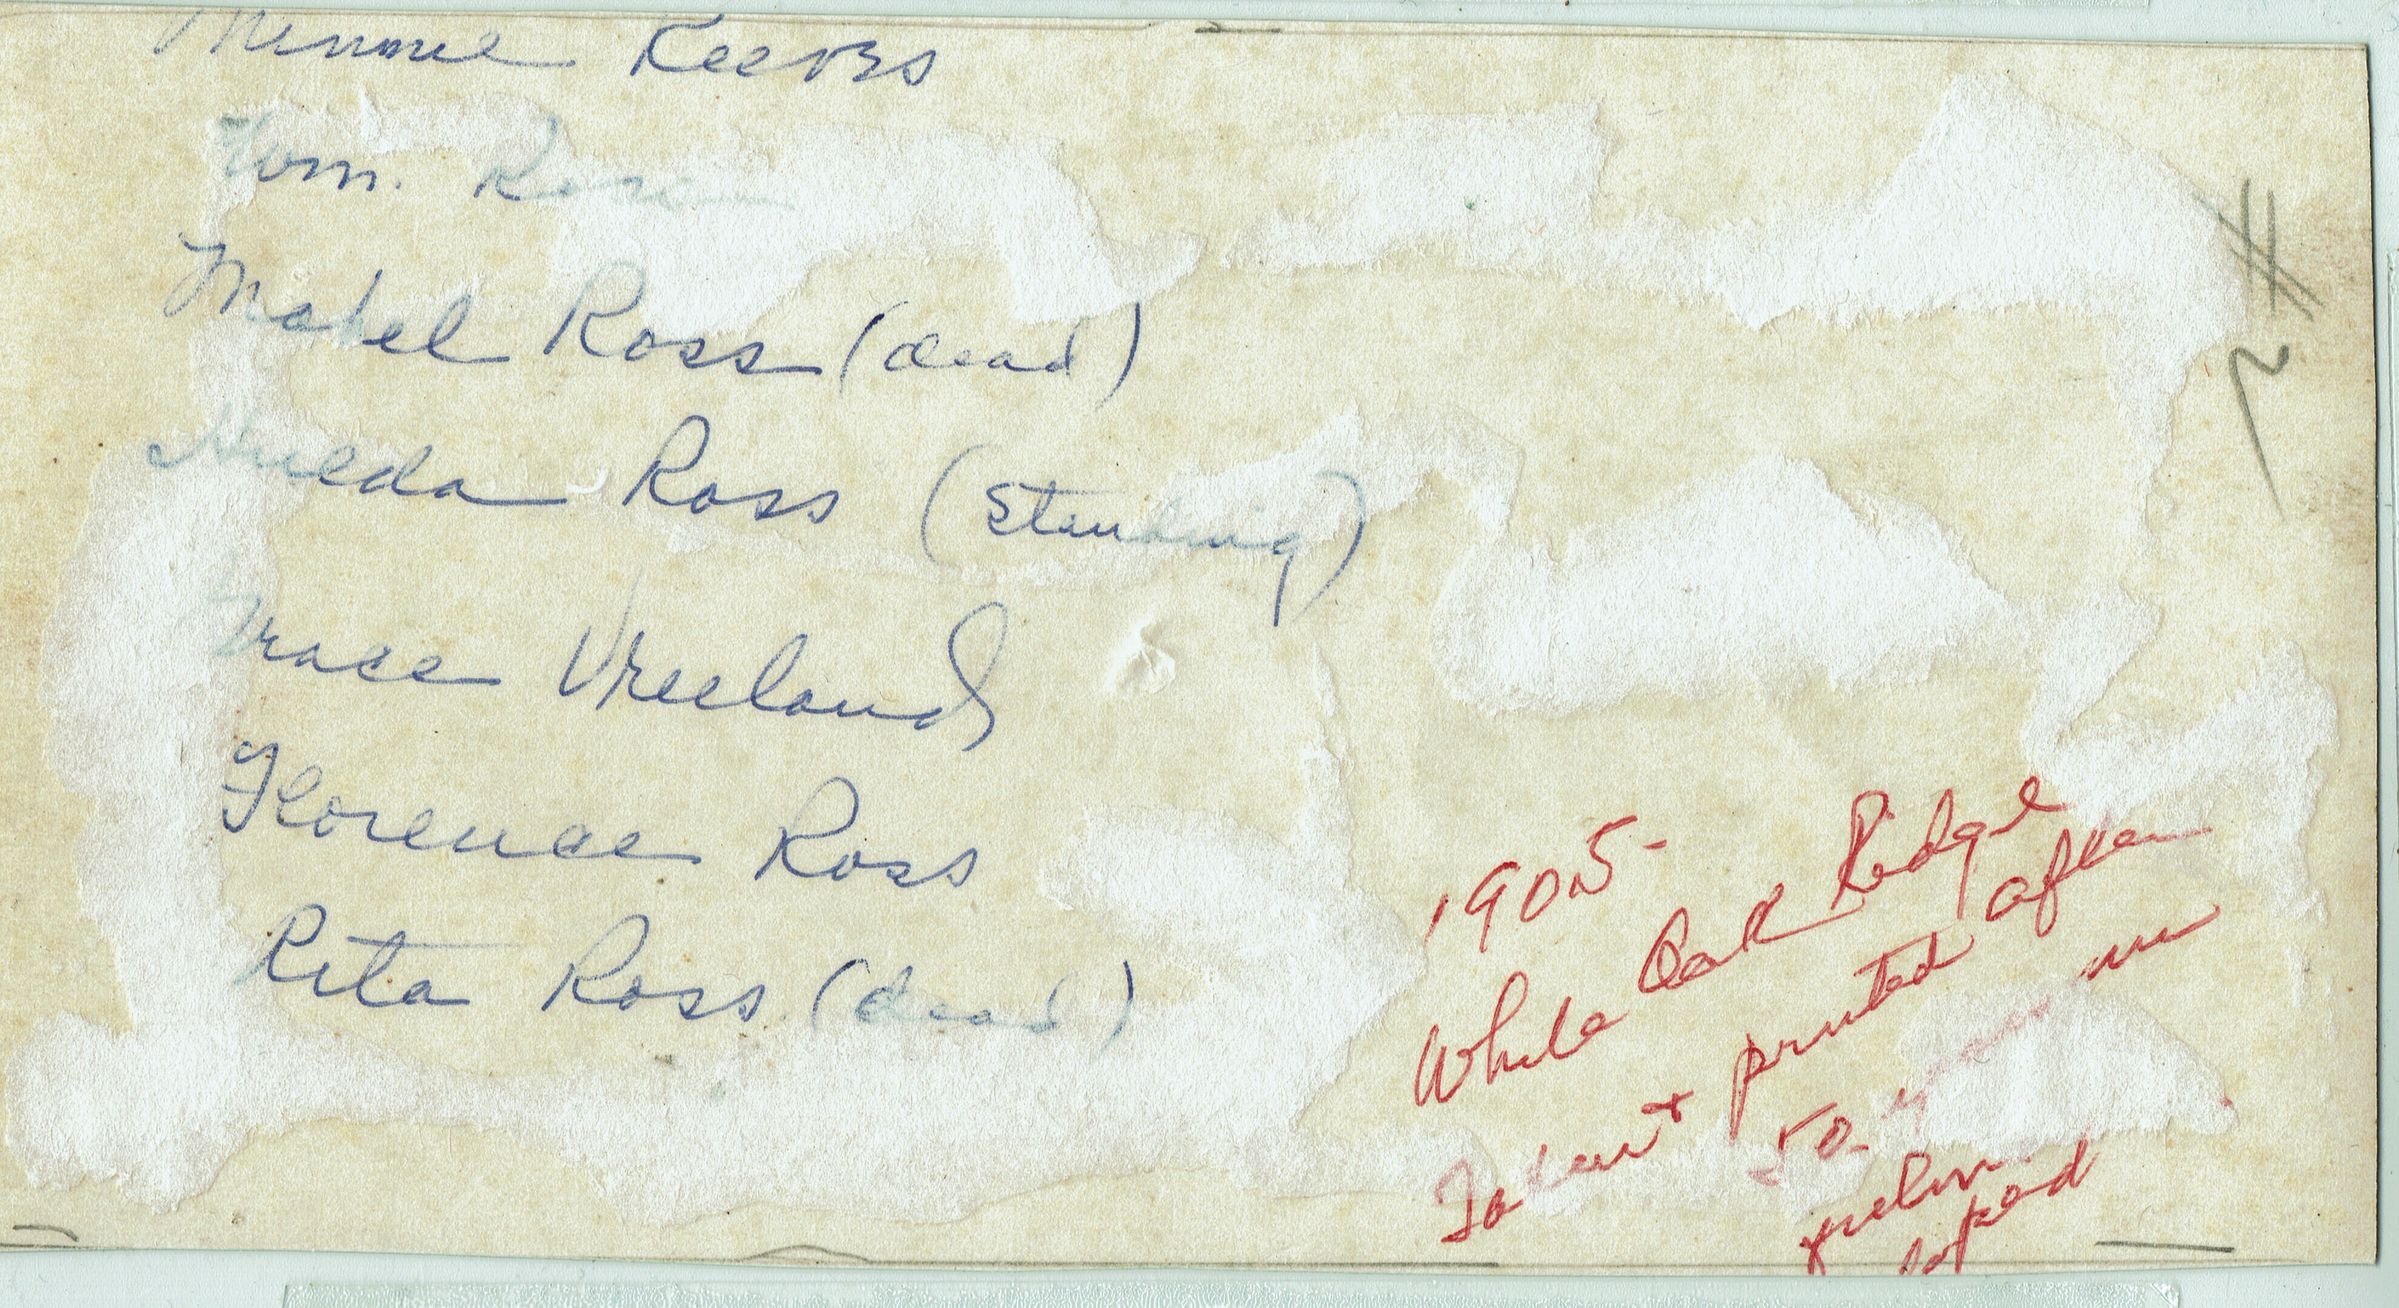 Minnie Reeves
Wm.
Mabel Ross (dead)
Ross (Standing)
Grace Vreeland
Florence Ross
Rita Ross (dead)
#
1905-
White Oak Ridge
Taken + printed after
50 years in